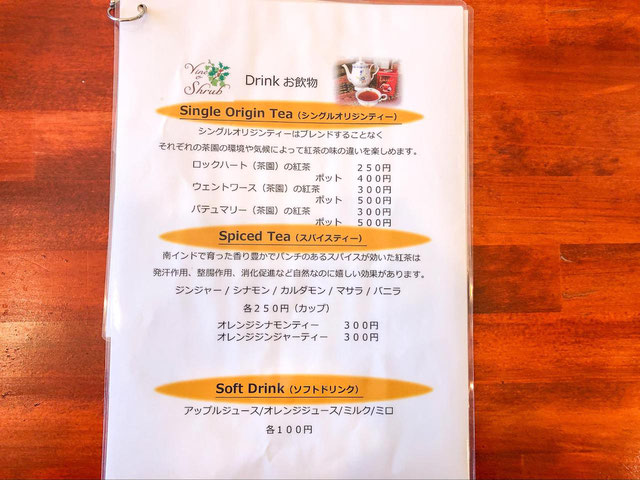 Vine & Shrub
Drink お飲物
Single Origin Tea（シングルオリジンティー）
シングルオリジンティーはブレンドすることなく
それぞれの茶園の環境や気候によって紅茶の味の違いを楽しめます。
ロックハート（茶園）の紅茶 ２５０円
ポット ４００円
ウェントワース（茶園）の紅茶 ３００円
ポット ５００円
パテュマリー（茶園）の紅茶 ３００円
ポット ５００円
Spiced Tea（スパイスティー）
南インドで育った香り豊かでパンチのあるスパイスが効いた紅茶は
発汗作用、整腸作用、消化促進など自然なのに嬉しい効果があります。
ジンジャー / シナモン / カルダモン / マサラ / バニラ
各２５０円（カップ）
オレンジシナモンティー ３００円
オレンジジンジャーティー ３００円
Soft Drink（ソフトドリンク）
アップルジュース/オレンジジュース/ミルク/ミロ
各１００円